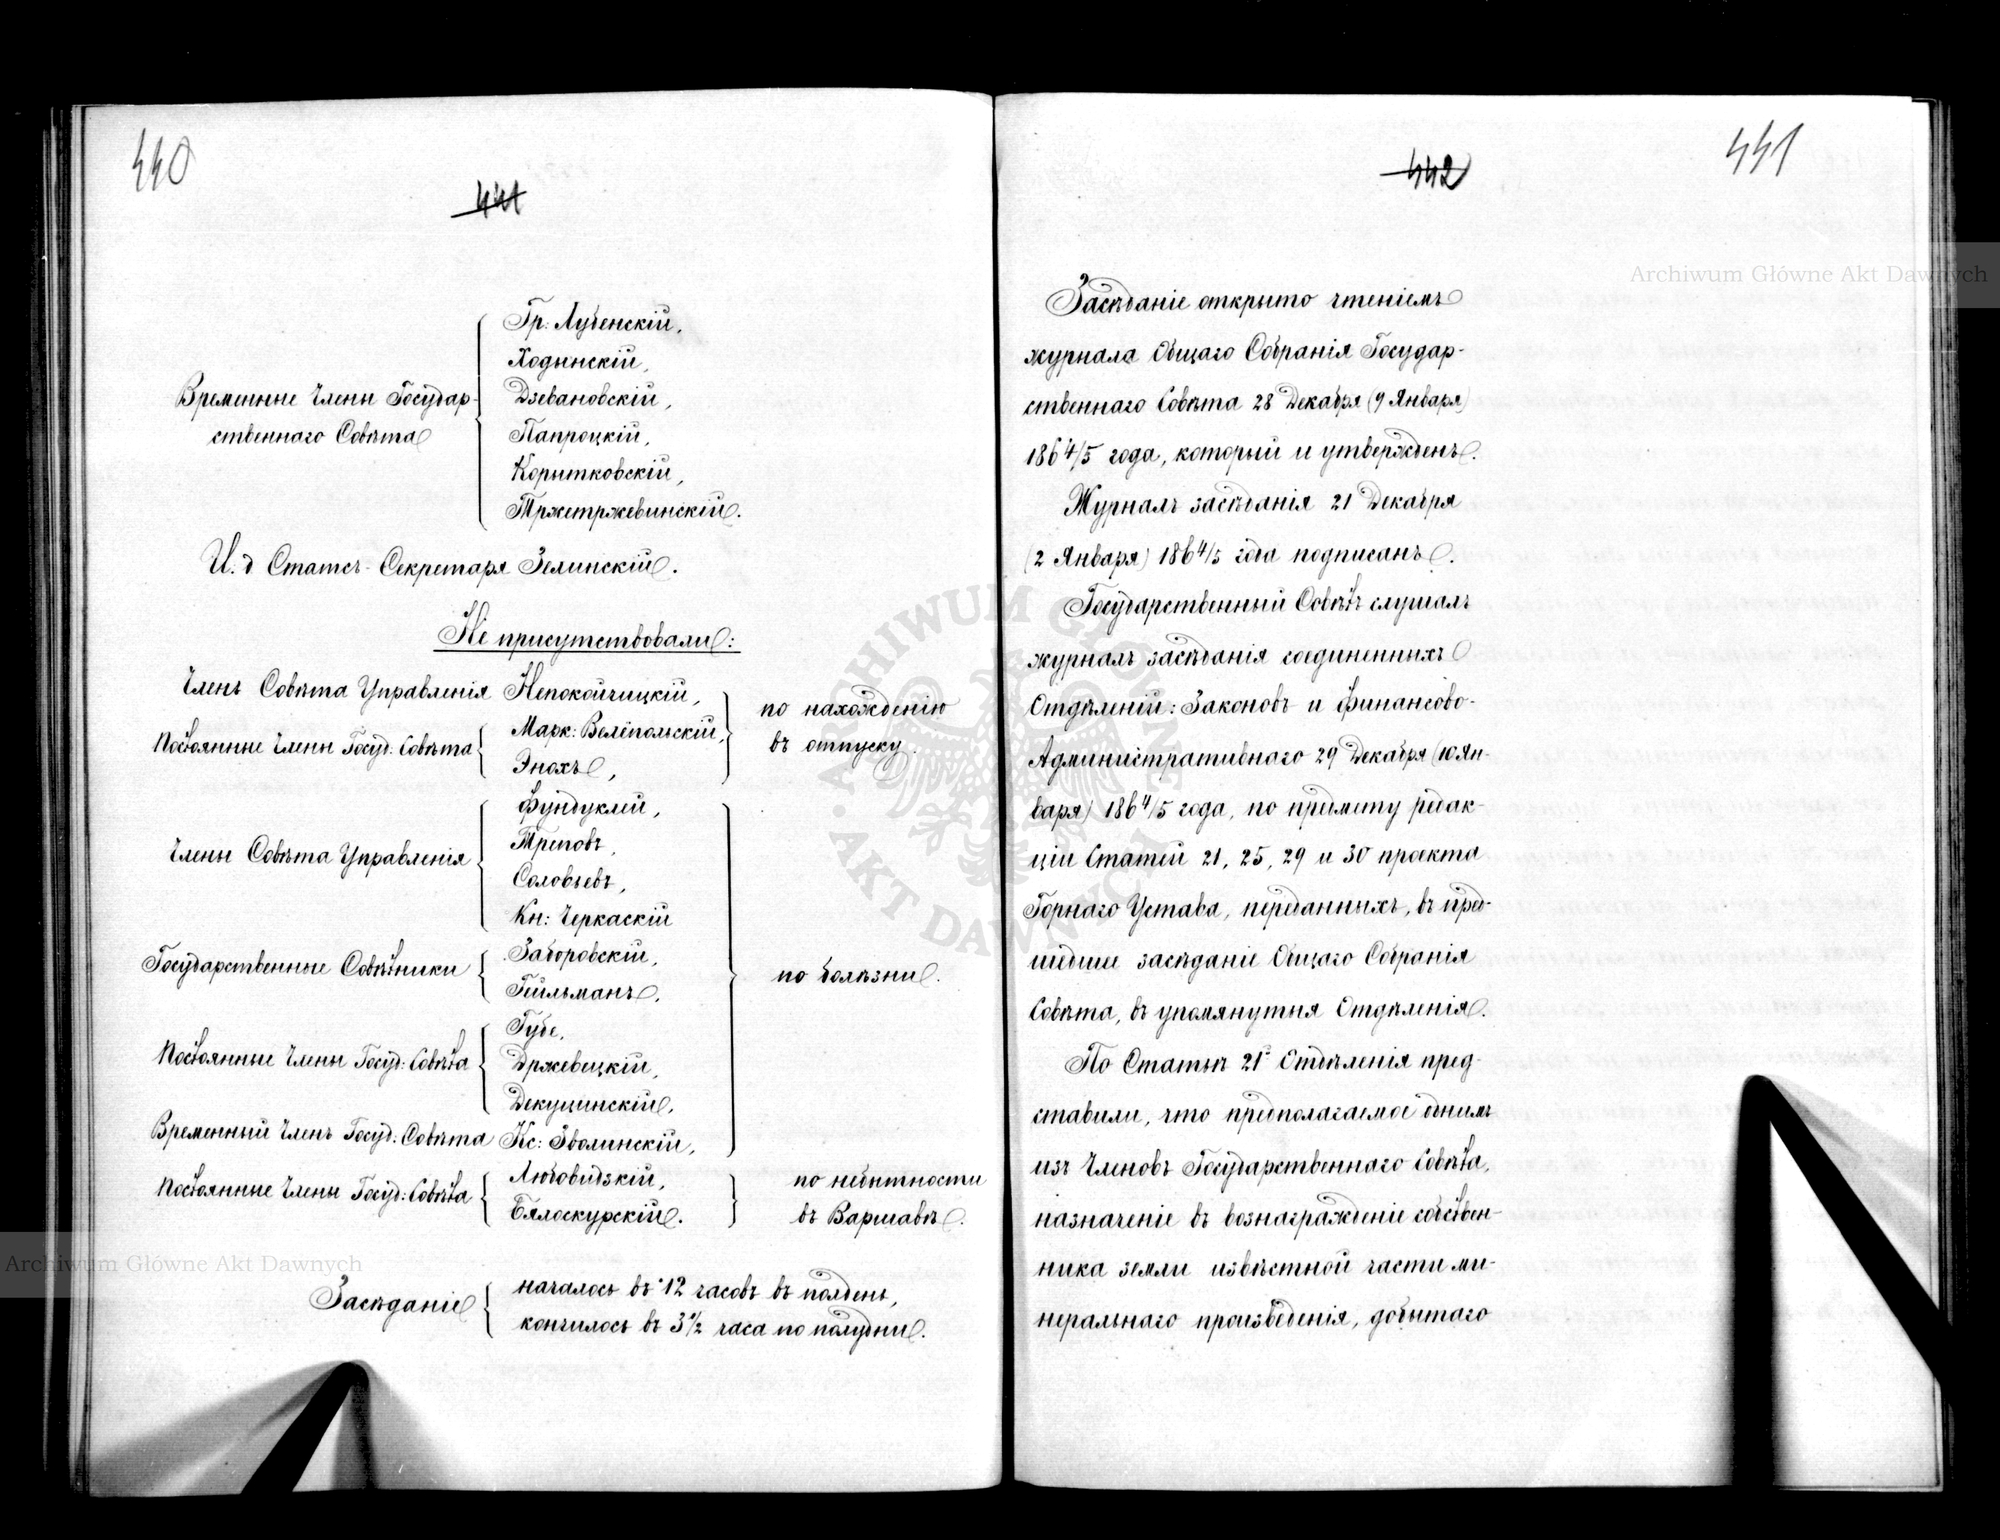 440
441
Временные Члены Государ-
ственного Совѣта
Гр: Лубенскій,
Ходынскій,
Дзевановскій,
Папроцкій,
Корытковскій,
Тржетржевинскій.
И. д Статсъ-Секретаря Зелинскій.
Не присутствовали:
Членъ Совѣта Управленія Непокойчицкій,
Постоянные Члены Госуд: Совѣта
Марк: Велепольскій,
Энохъ,
по нахожденію
въ отпуску.
Члены Совѣта Управленія
Фундуклей,
Треповъ,
Соловьевъ,
Кн: Черкаскій
Государственные Совѣтники
Заборовскій,
Гейльманъ,
Постоянные Члены Госуд: Совѣта
Губе,
Држевецкій,
Декуцинскій,
Временный Членъ Госуд: Совѣта Кс: Зволинскій,
по болѣзни.
Постоянные Члены Госуд: Совѣта
Любовидзкій,
Бялоскурскій.
по небытности
въ Варшавѣ.
Засѣданіе
началось въ 12 часовъ въ полдень,
кончилось въ 3 1/2 часа по полудни.
441
442
Засѣданіе открыто чтеніемъ
журнала Общаго Собранія Государ-
ственнаго Совѣта 28 Декабря (9 Января)
1864/5 года, который и утвержденъ.
Журналъ засѣданія 21 Декабря
(2 Января) 1864/5 года подписанъ.
Государственный Совѣтъ слушалъ
журналъ засѣданія соединенныхъ
Отдѣленій: Законовъ и Финансово-
Административнаго 29 Декабря (10 Ян-
варя) 1864/5 года, по предмету редак-
ціи Статей 21, 25, 29 и 30 проэкта
Горнаго Устава, переданныхъ, въ пред-
шедшее засѣданіе Общаго Собранія
Совѣта, въ упомянутыя Отдѣленія.
По Статьѣ 21й Отдѣленія пред-
ставили, что предполагаемое однимъ
изъ Членовъ Государственнаго Совѣта,
назначеніе въ вознагражденіе собствен-
ника земли извѣстной части ми-
неральнаго произведенія, добытаго
Archiwum Główne Akt Dawnych
Archiwum Główne Akt Dawnych
ARCHIWUM GŁÓWNE
AKT DAWNYCH